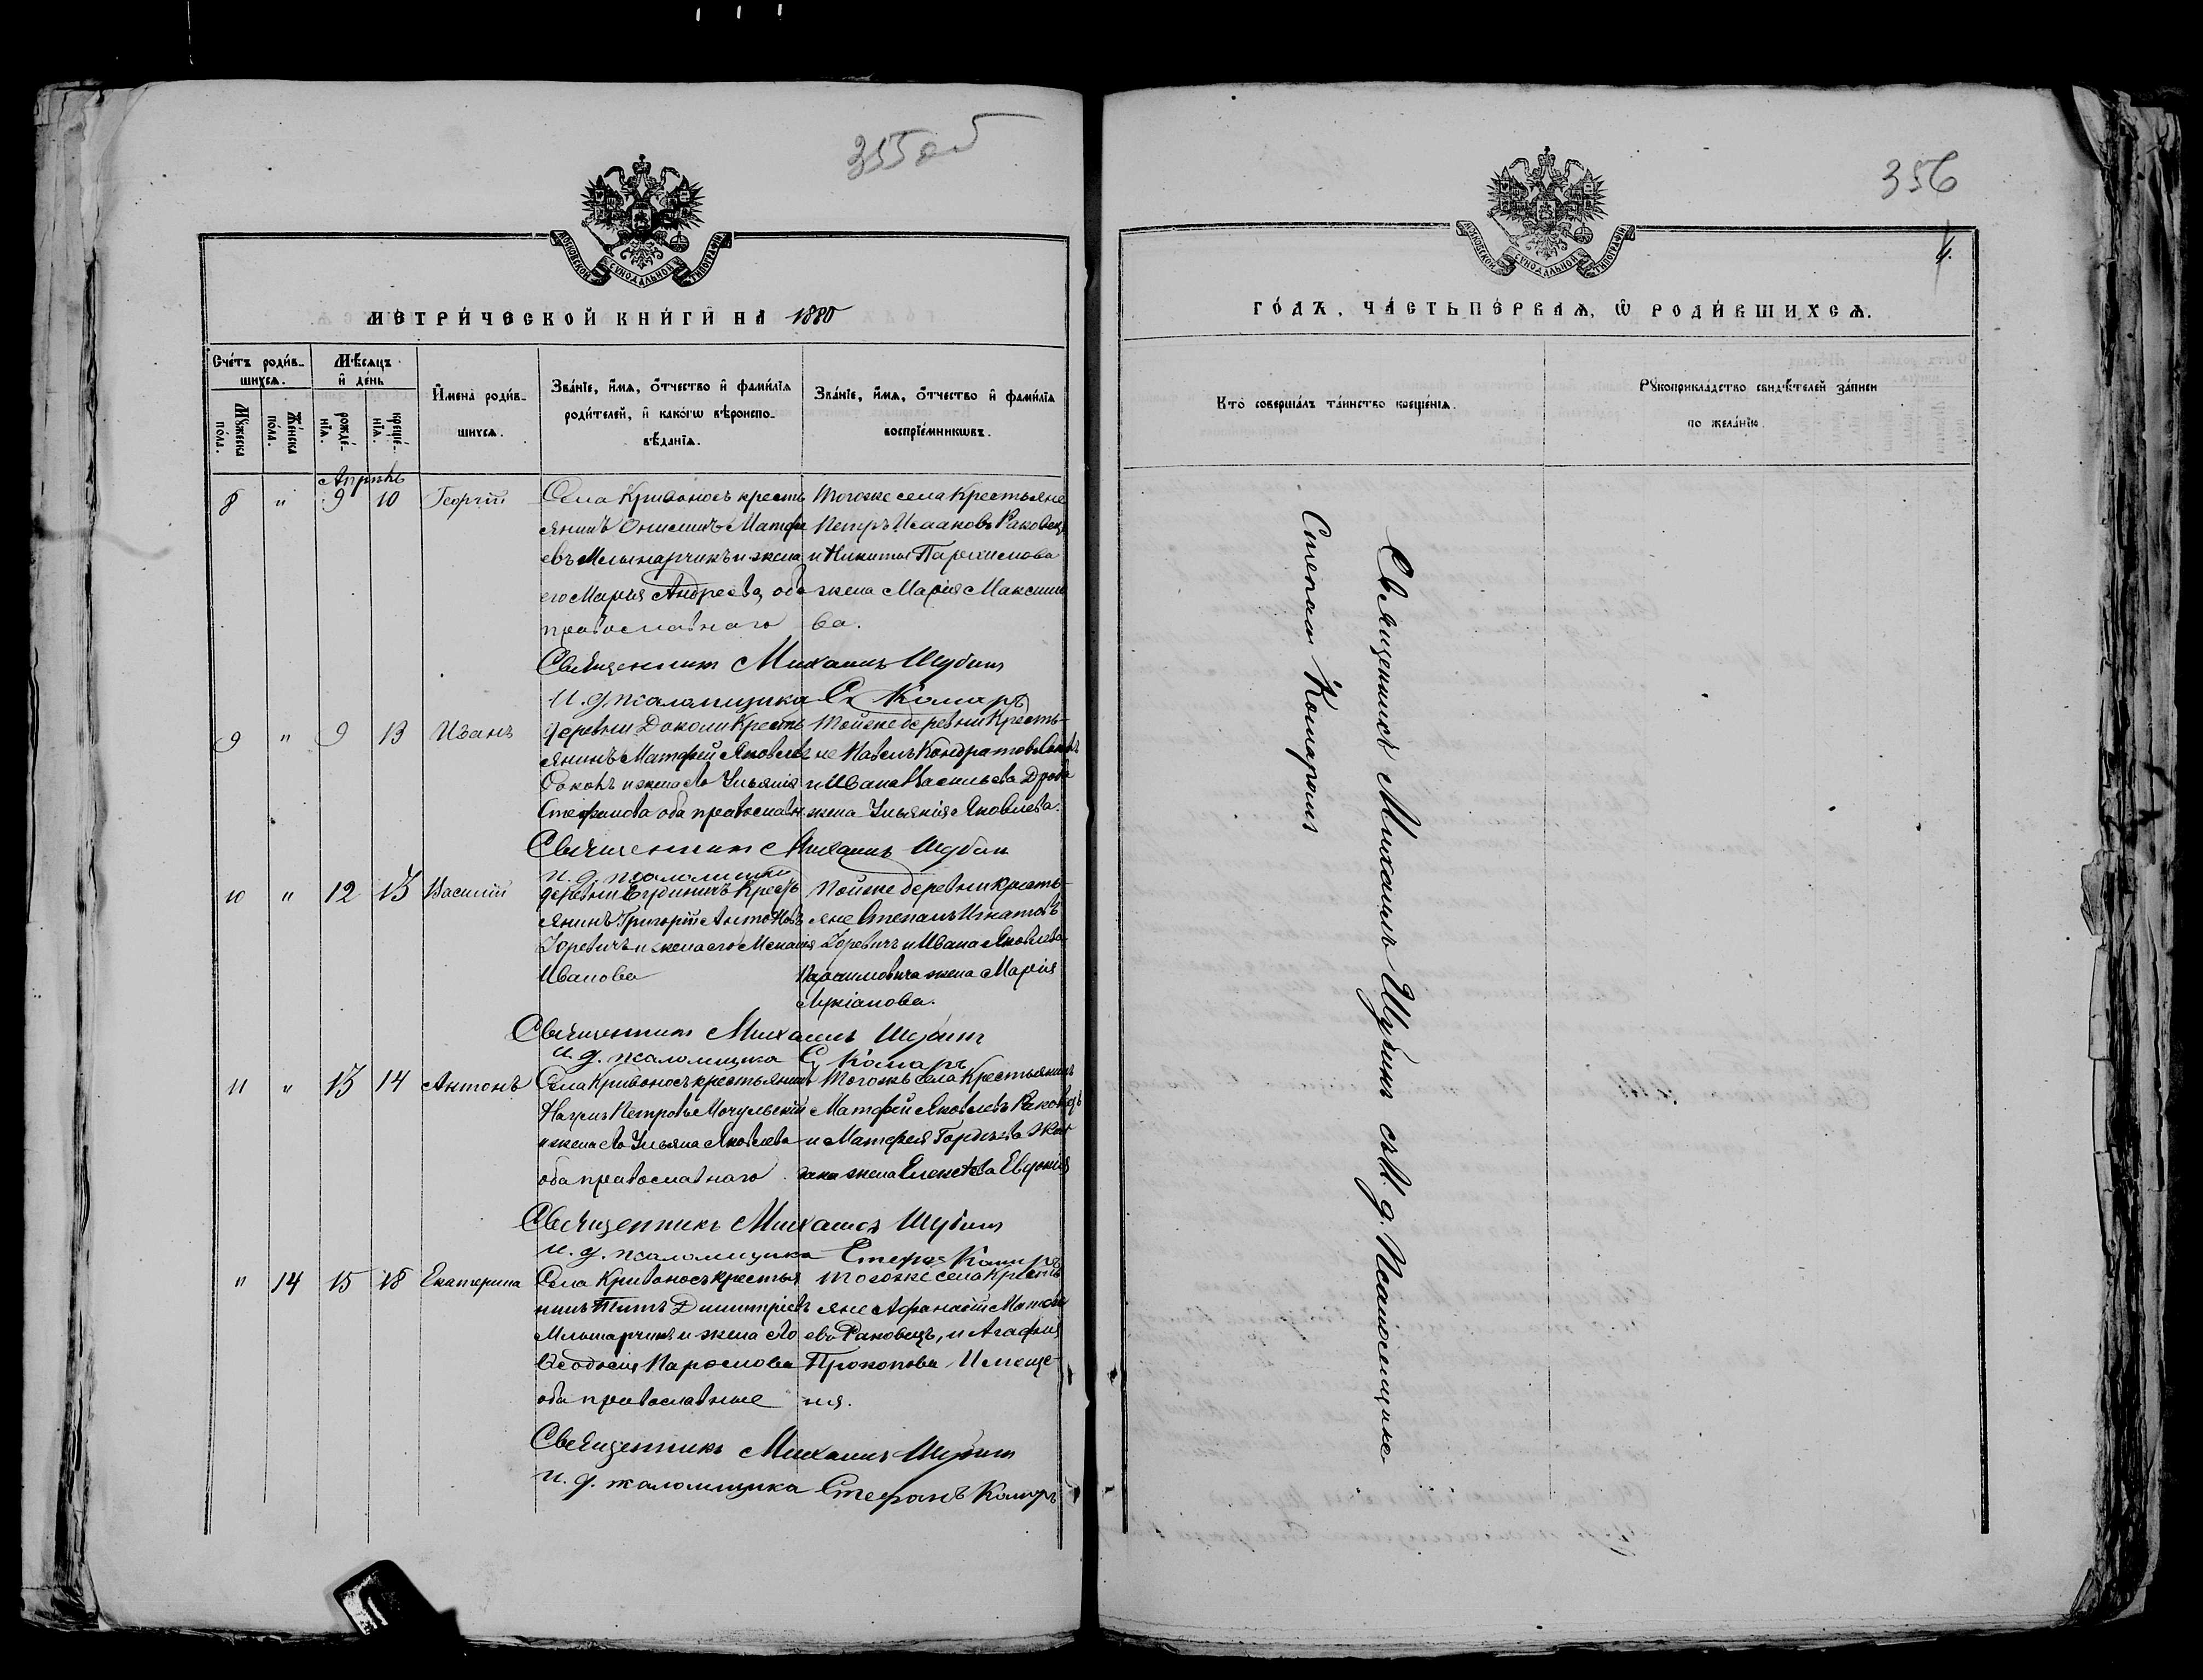 355 об
МОСКОВСКОЙ СѴНОДАЛЬНОЙ ТИПОГРАФІИ
МЕТРИ́ЧЕСКОЙ КНИ́ГИ НА 1880
Сче́тъ роди́в-
шихсѧ.
Мѣ́сѧцъ
и҆ де́нь
Мꙋ́жеска
по́ла.
Же́нска
по́ла.
рожде́-
нїѧ.
креще́-
нїѧ.
И҆мена̀ роди́в-
шихсѧ.
Зва́нїе, и҆́мѧ, ѻ҆́тчество и҆ фами́лїѧ
роди́телей, и҆ како́гѡ вѣроиспо-
вѣ́данїѧ.
Зва́нїе, и҆́мѧ, ѻ҆́тчество и҆ фами́лїѧ
воспрїе́мникѡвъ.
Апрѣль
8 " 9 10 Георгій
Села Кривоносъ кресть
янинъ Онисимъ Матфе
евъ Мельничукъ и жена
его Марія Андреева, оба
православнаго
Тогоже села Крестьяне
Петръ Исааковъ Раковецъ
и Никиты Пархимова
жена Марія Максимо
ва.
Священникъ Михаилъ Шубинъ
И. д. псаломщика С. Комаръ
9 " 9 13 Иванъ
деревни Доколи Кресть
янинъ Матфей Яковлевъ
и жена его Ульянія
Стефанова оба православн.
Тойже деревни Кресть-
яне Павелъ Кондратовъ
и Ивана Васильева
жена Ульянія Яковлева.
Священникъ Михаилъ Шубин
и. д. псаломщика
10 " 12 13 Василій
деревни Крест
янинъ Григорій Антоновъ
Зоревичъ и жена его Меланія
Иванова
Тойже деревни Кресть-
яне Степанъ Игнатовъ
Зоревичъ и Ивана Яковлева
жена Марія
Лукіанова.
Священникъ Михаилъ Шубинъ
и. д. псаломщика С. Комаръ
11 " 13 14 Антонъ
Села Кривоносъ крестьянинъ
Наумъ Петровъ Мочульскій
и жена его Ульяна Яковлева
оба православнаго
Тогожъ села Крестьянинъ
Матфей Яковлевъ Раковецъ
и Матфея Гордѣева
жена Евдокія
Священникъ Михаилъ Шубинъ
и. д. псаломщика Стефанъ Комаръ
" 14 15 18 Екатерина
Села Кривоносъ крестья
нинъ Титъ Димитріевъ
и жена его
Ѳеодосія
оба православные
Тогоже села Кресть
яне Афанасій Матфе
евъ Раковецъ, и Агафія
Прокопова
ня.
Священникъ Михаилъ Шубинъ
и. д. псаломщика Стефанъ Комаръ
356
4.
МОСКОВСКОЙ СѴНОДАЛЬНОЙ ТИПОГРАФІИ
ГО́ДЪ, ЧА́СТЬ ПЕ́РВАѦ, Ѡ҆ РОДИ́ВШИХСѦ.
Кто̀ соверша́лъ та́инство креще́нїѧ.
Рꙋкоприкла́дство свидѣ́телей за́писи
по жела́нїю.
Священникъ Михаилъ Шубинъ съ И. д. Псаломщика
Степаномъ Комаромъ